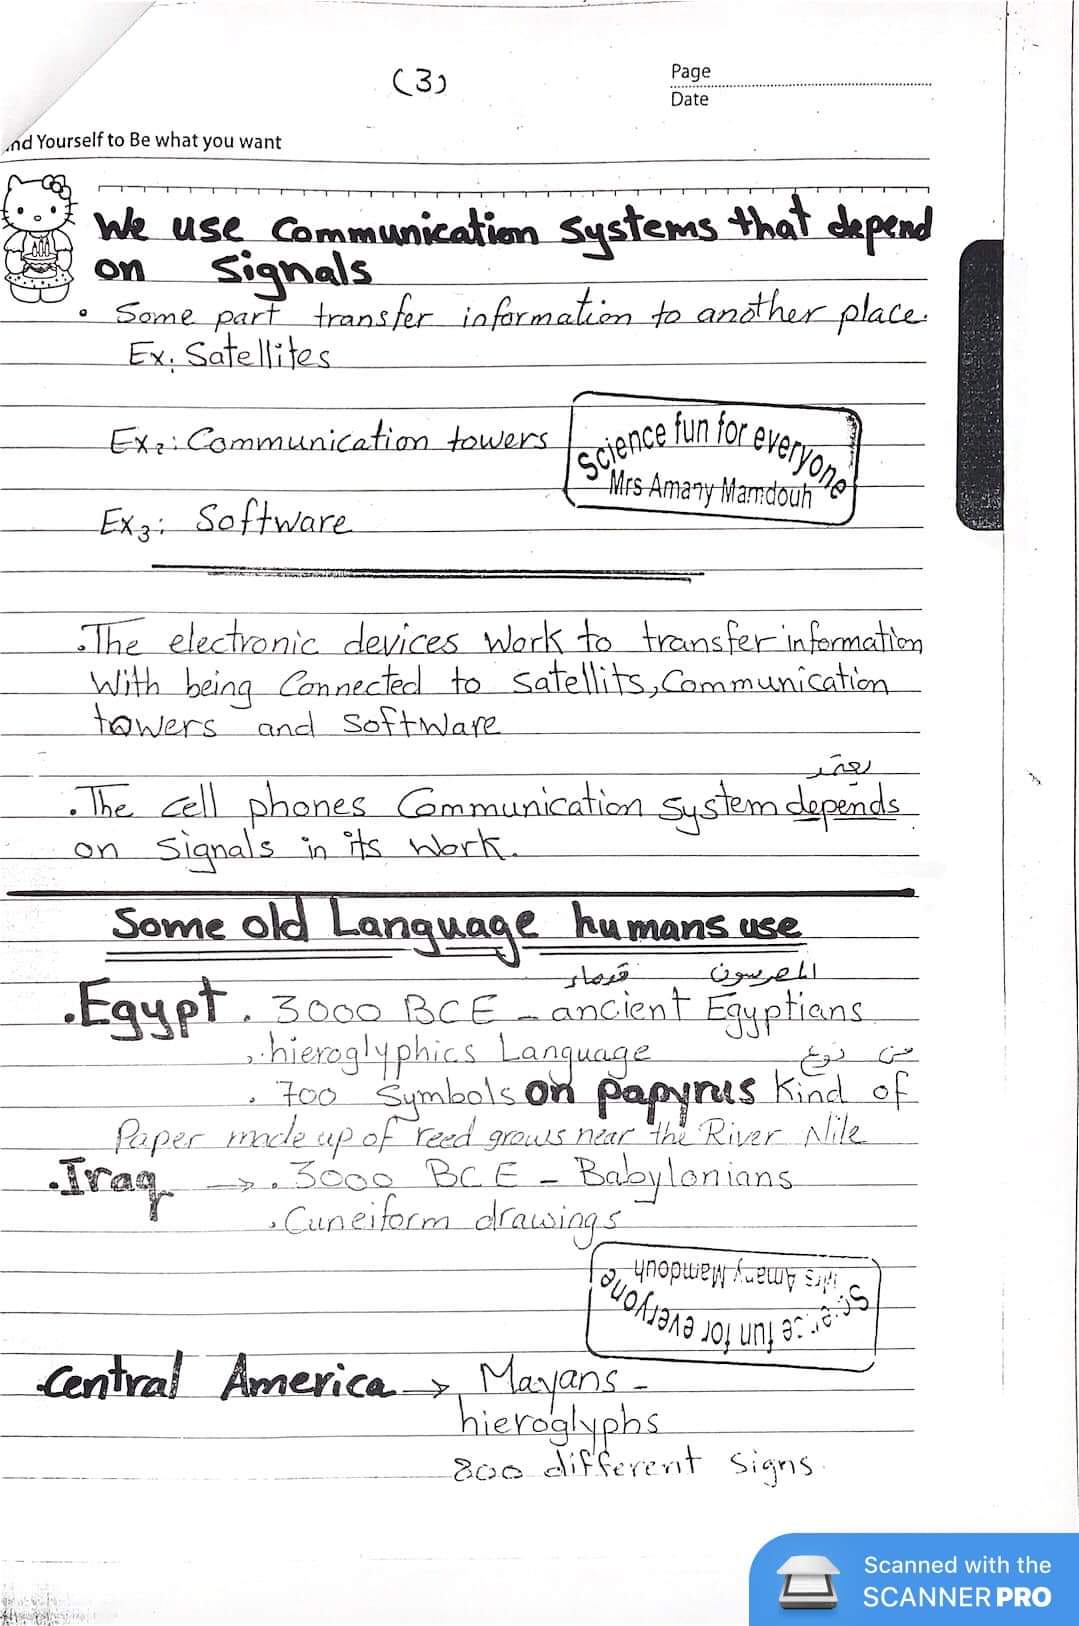 (3)
Page
Date
nd Yourself to Be what you want
We use Communication systems that depend
on signals
• Some part transfer information to another place.
Ex: Satellites
Ex2: Communication towers
Science fun for everyone
Mrs Amany Mamdouh
Ex3: Software
.The electronic devices work to transfer information
With being Connected to satellits, Communication
towers and software
يعتمد
.The cell phones Communication system depends
on signals in its work.
Some old Language humans use
قدماء المصريون
.Egypt . 3000 BCE - ancient Egyptians
. hieroglyphics Language
من نوع
. 700 Symbols on papyrus Kind of
Paper made up of reed grows near the River Nile
.Iraq → . 3000 BCE - Babylonians
. Cuneiform drawings
Mrs Amany Mamdouh
Science fun for everyone
.Central America → Mayans -
hieroglyphs
800 different signs.
Scanned with the
SCANNER PRO